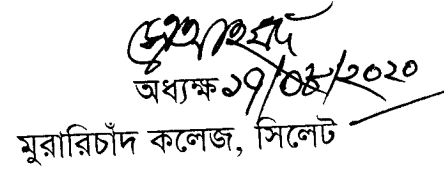 অধ্যক্ষ ১৭/০৮/২০২০
মুরারিচাঁদ কলেজ, সিলেট